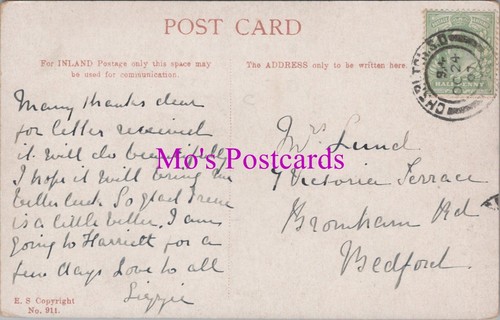 POST CARD
For INLAND Postage only this space may
be used for communication.
The ADDRESS only to be written here.
Many thanks dear
for letter received
it will do beautifully
I hope it will bring me
better luck. So glad Irene
is a little better. I am
going to Harriett for a
few days Love to all
Lizzie
E. S Copyright
No. 911.
Mrs Lund
7 Victoria Terrace
Bromham Rd
Bedford.
HALFPENNY
OC 24
Mo's Postcards